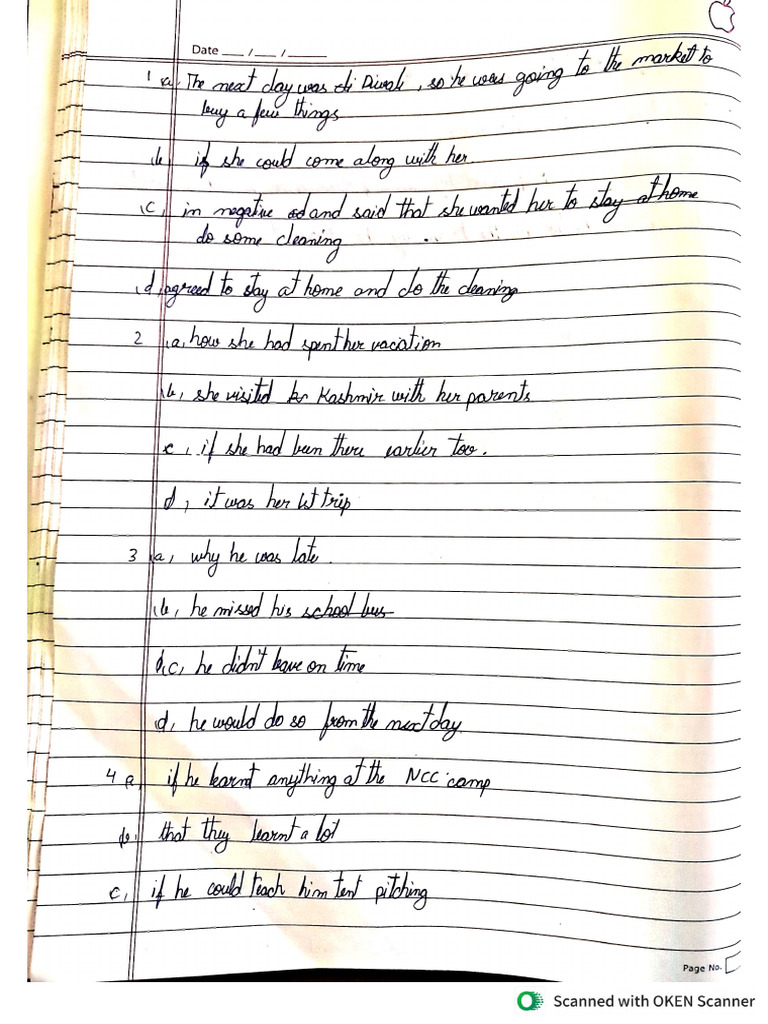 Date ___ / ___ / _____
1 a, The next day was Diwali, so he was going to the market to
buy a few things
b, if she could come along with her.
c, in negative and said that she wanted her to stay at home
do some cleaning
d, agreed to stay at home and do the cleaning
2 a, how she had spent her vacation
b, she visited Kashmir with her parents
c, if she had been there earlier too.
d, it was her 1st trip
3 a, why he was late.
b, he missed his school bus
c, he didn't leave on time
d, he would do so from the next day.
4 a, if he learnt anything at the NCC camp
b, that they learnt a lot
c, if he could teach him tent pitching
Page No.
Scanned with OKEN Scanner